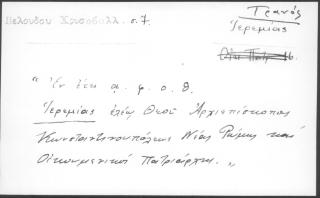 Πελοπίδου Χρυσοβαλ. σ.7.
Τρανός
Ἱερεμίας
"Ἐν ἔτει α. φ. ο. θ.
Ἱερεμίας ἐλέῳ Θεοῦ Ἀρχιεπίσκοπος
Κωνσταντινουπόλεως Νέας Ρώμης καὶ
Οἰκουμενικὸς Πατριάρχης."